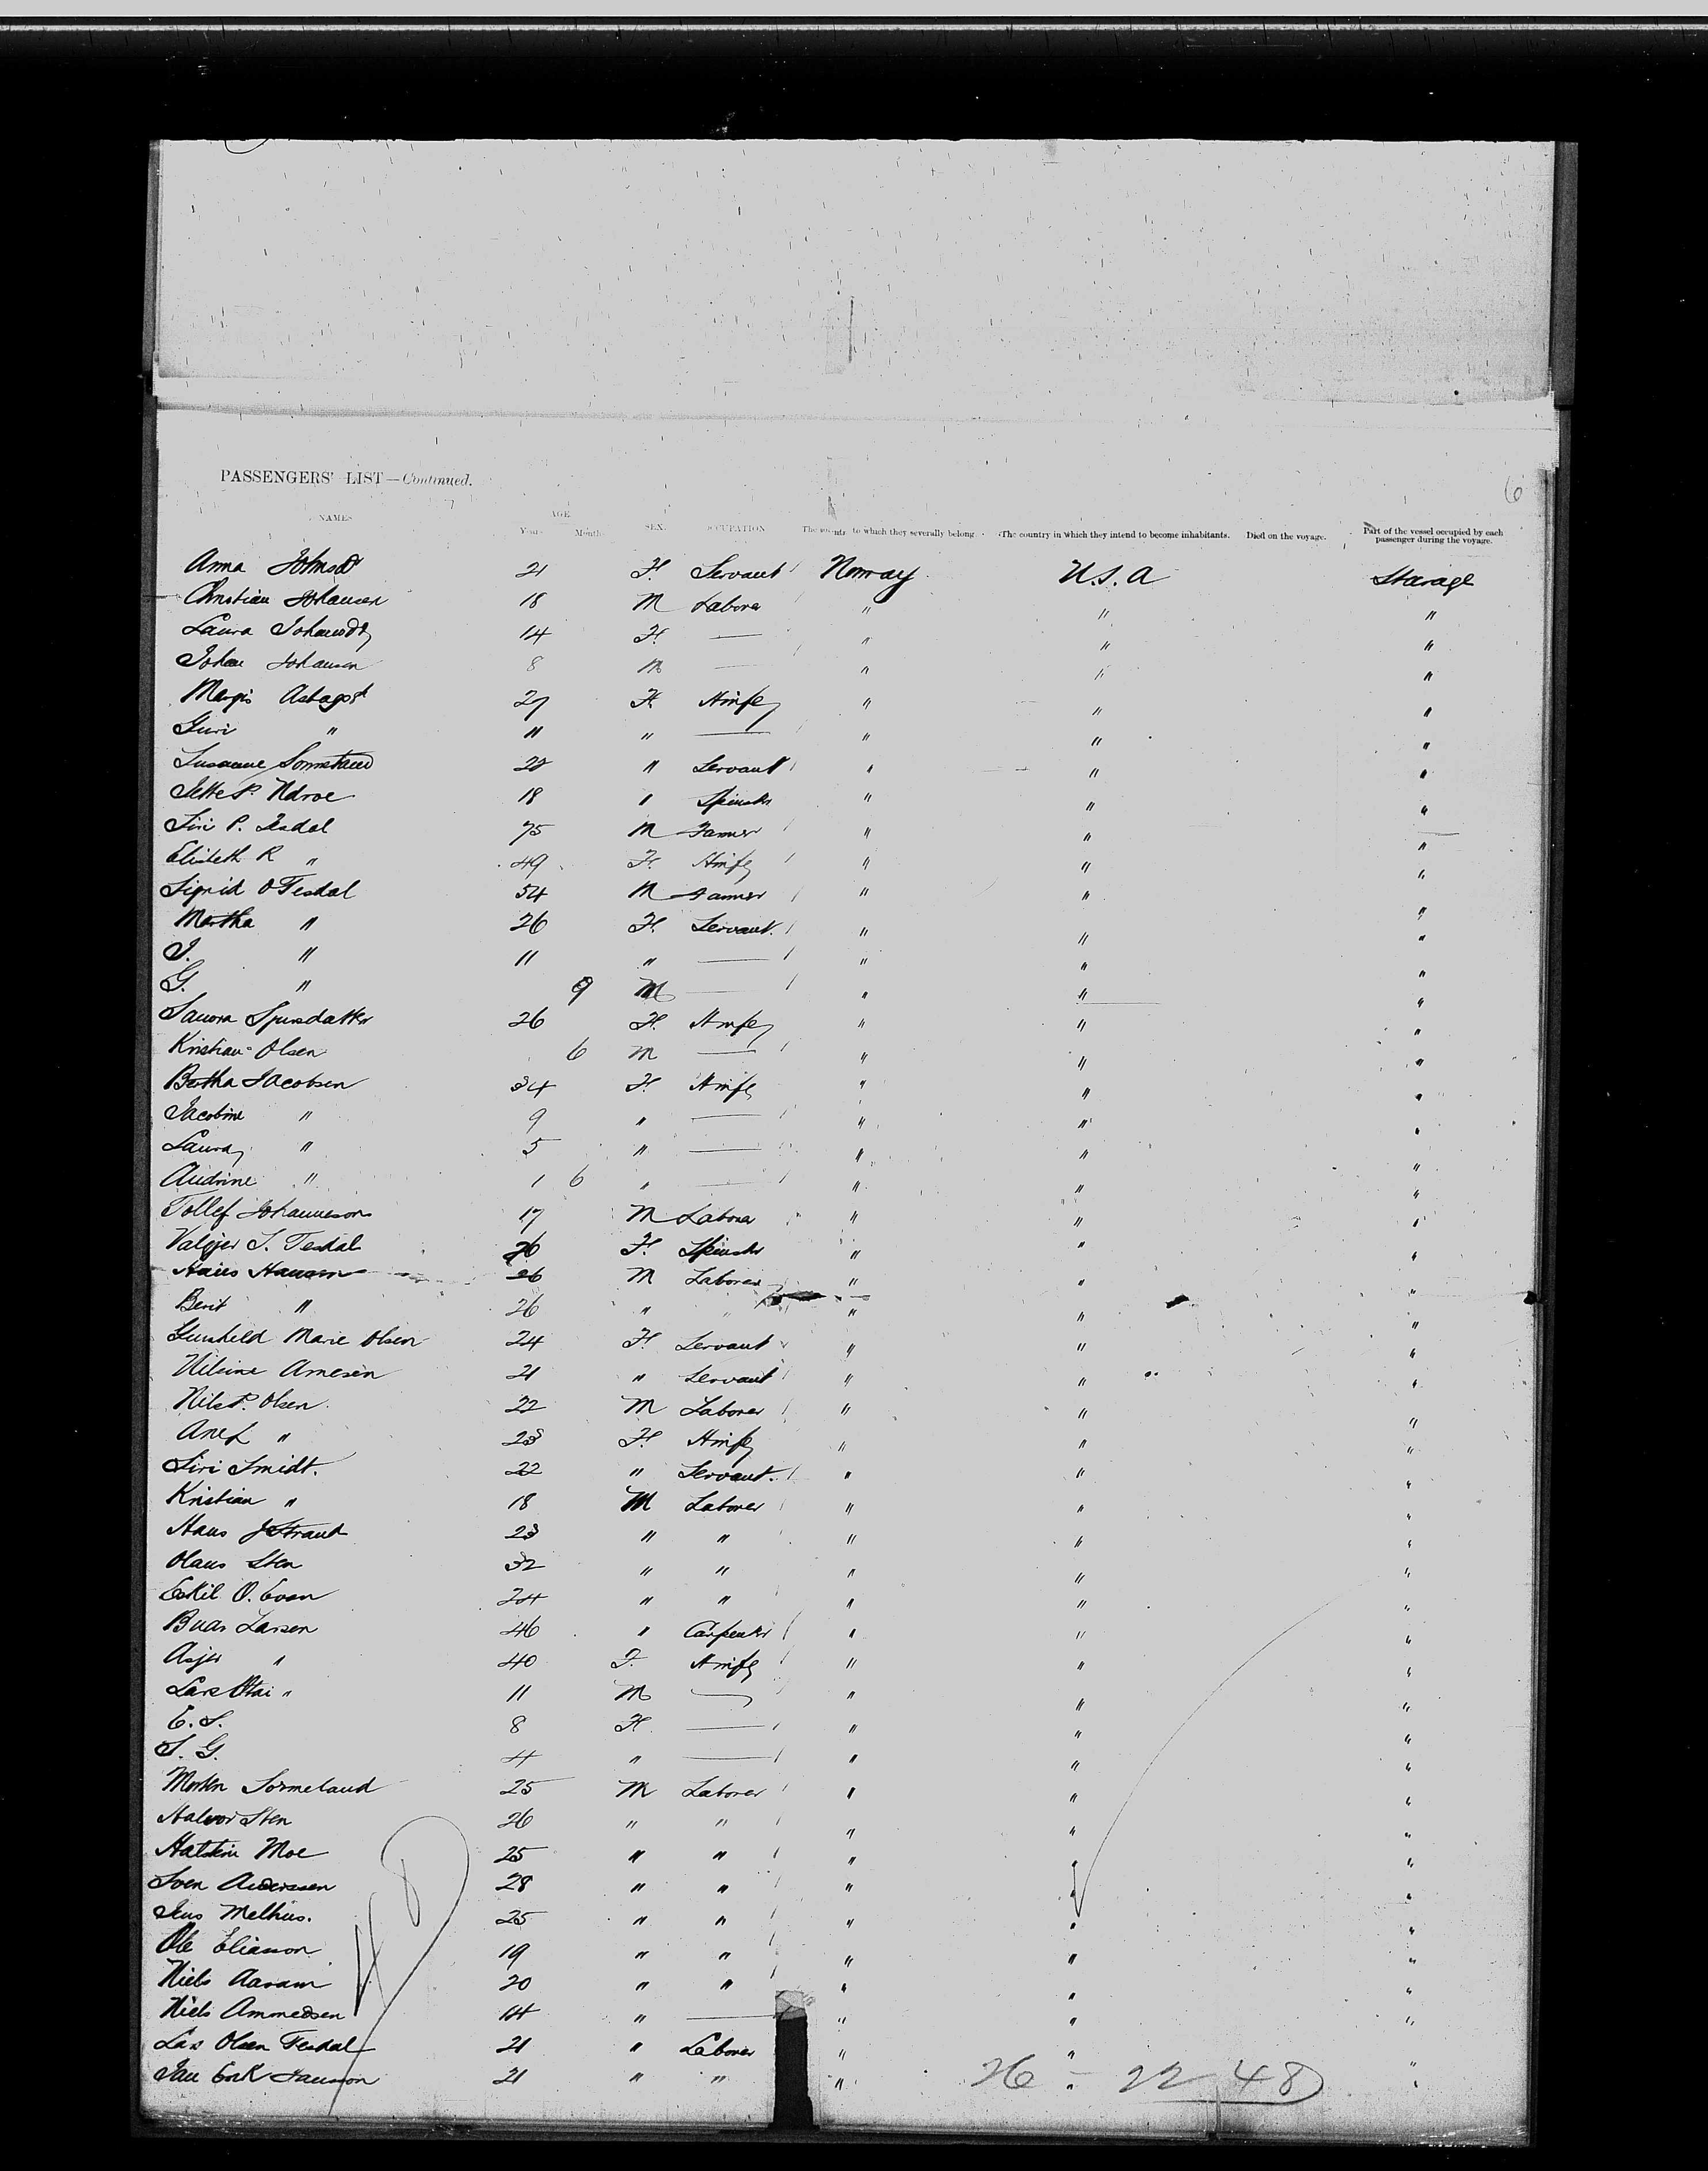 6
PASSENGERS' LIST—Continued.
NAMES AGE SEX. OCCUPATION The country to which they severally belong. The country in which they intend to become inhabitants. Died on the voyage. Part of the vessel occupied by each
Years Months passenger during the voyage.
Anna 21 F. Servant Norway U.S.A Starage
Christian Johansen 18 M Laborer " " "
Laura 14 F. — " " "
Johan Johansen 8 M — " " "
27 F. Hwife " " "
Guri " 11 " — " " "
Susanne 28 " Servant " " "
18 " Spinster " " "
Siri P. Tesdal 75 M Farmer " " "
Elisbeth R " 49 F. Hwife " " "
Sigrid O Tesdal 54 M Farmer " " "
Martha " 26 F. Servant. " " "
I. " 11 " — " " "
G. " 9 M — " " "
26 F. Hwife " " "
Kristian Olsen 6 M — " " "
Bertha Jacobsen 34 F. Hwife " " "
Jacobine " 9 " — " " "
Laura " 5 " — " " "
Andrine " 1 6 " — " " "
Tollef Johanneson 17 M Laborer " " "
Valgjer S. Tesdal 26 F. Spinster " " "
Hans Hansen 26 M Laborer " " "
Berit " 26 " " " " "
Gunhild Marie Olsen 24 F. Servant " " "
Nilsine Arnesen 21 " Servant " " "
Nils P. Olsen 22 M Laborer " " "
Ane L " 23 F. Hwife " " "
Siri Smidt. 22 " Servant. " " "
Kristian " 18 M Laborer " " "
Hans J Strand 23 " " " " "
Olaus Sten 32 " " " " "
Eskil O. Evan 24 " " " " "
Larsen 46 " Carpenter " " "
" 40 F. Hwife " " "
Lars " 11 M — " " "
E. S. 8 F. — " " "
S. G. 4 " — " " "
Morten Sormeland 25 M Laborer " " "
Halvor Sten 26 " " " " "
Moe 25 " " " " "
Sven Anderssen 28 " " " " "
Jens Melhus. 25 " " " " "
Ole Eliasson 19 " " " " "
Niels 20 " " " " "
Niels Ammedsen 14 " — " " "
Lars Olsen Tesdal 21 " Laborer " " "
21 " " " " "
26 - 22 48